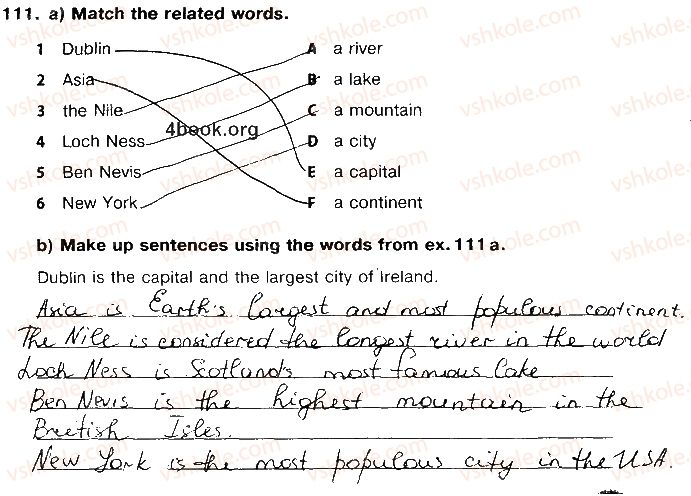 111. a) Match the related words.
1 Dublin A a river
2 Asia B a lake
3 the Nile C a mountain
4book.org
4 Loch Ness D a city
5 Ben Nevis E a capital
6 New York F a continent
b) Make up sentences using the words from ex. 111 a.
Dublin is the capital and the largest city of Ireland.
Asia is Earth's largest and most populous continent.
The Nile is considered the longest river in the world
Loch Ness is Scotland's most famous lake
Ben Nevis is the highest mountain in the
British Isles.
New York is the most populous city in the USA.
vshkole.com